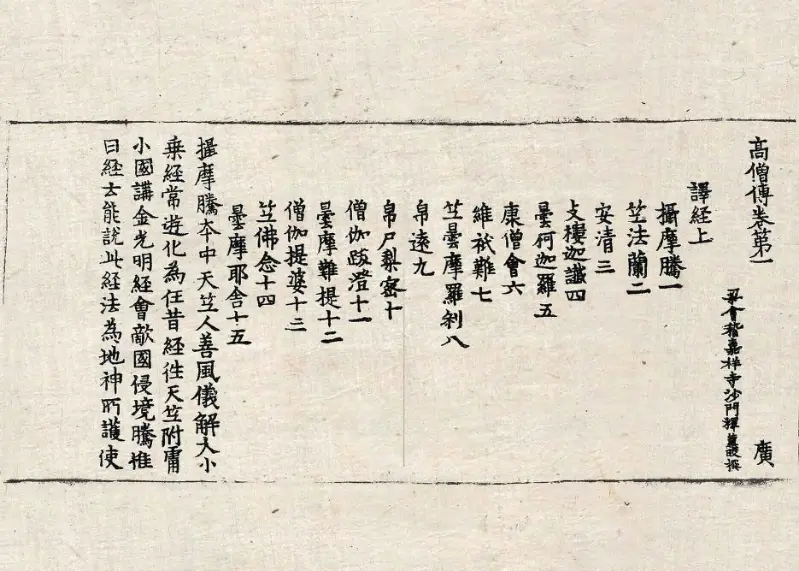 高僧傳卷第一 廣
梁會稽嘉祥寺沙門釋慧皎撰
譯經上
攝摩騰一
竺法蘭二
安清三
支樓迦讖四
曇柯迦羅五
康僧會六
維祇難七
竺曇摩羅剎八
帛遠九
帛尸梨密十
僧伽跋澄十一
曇摩難提十二
僧伽提婆十三
竺佛念十四
曇摩耶舍十五
攝摩騰本中天竺人善風儀解大小
乗經常遊化為任昔經往天竺附庸
小國講金光明經會敵國侵境騰惟
曰經云能說此經法為地神所護使